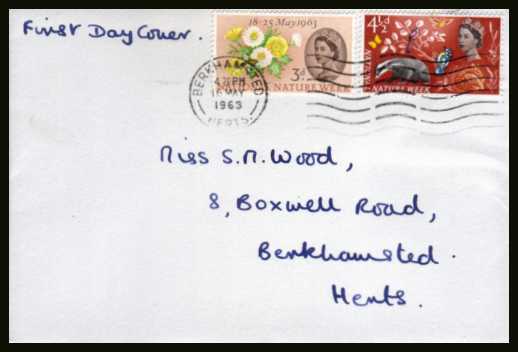 First Day Cover.
18-25 May 1963
3d
NATIONAL NATURE WEEK
4½d
NATURE WEEK
BERKHAMSTED
4 PM
16 MAY
1963
HERTS
Miss S.M. Wood,
8, Boxwell Road,
Berkhamsted.
Herts.